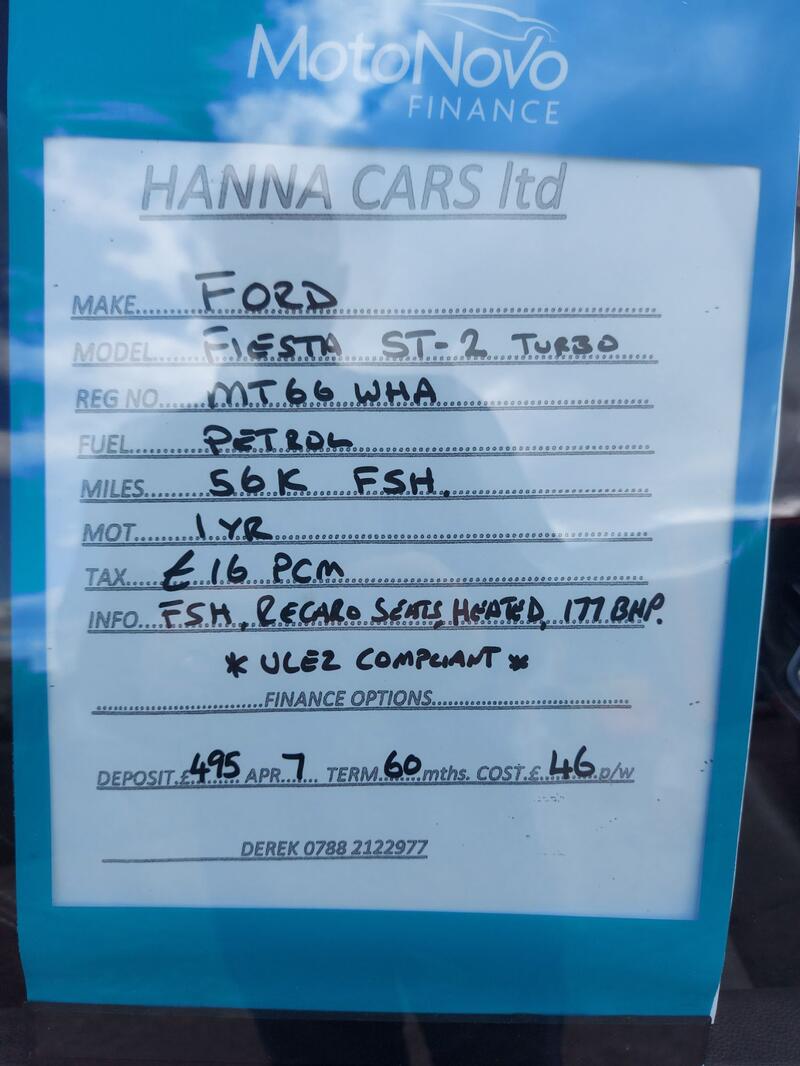 MotoNovo
FINANCE
HANNA CARS ltd
MAKE..... FORD
MODEL..... FIESTA ST-2 TURBO
REG NO..... MT66 WHA
FUEL..... PETROL
MILES..... 56K FSH.
MOT..... 1 YR
TAX..... £16 PCM
INFO... FSH, RECARO SEATS, HEATED, 177 BHP.
* ULEZ COMPLIANT *
.....FINANCE OPTIONS.....
DEPOSIT.£495 APR.7 TERM.60 mths. COST.£.46 p/w
DEREK 0788 2122977